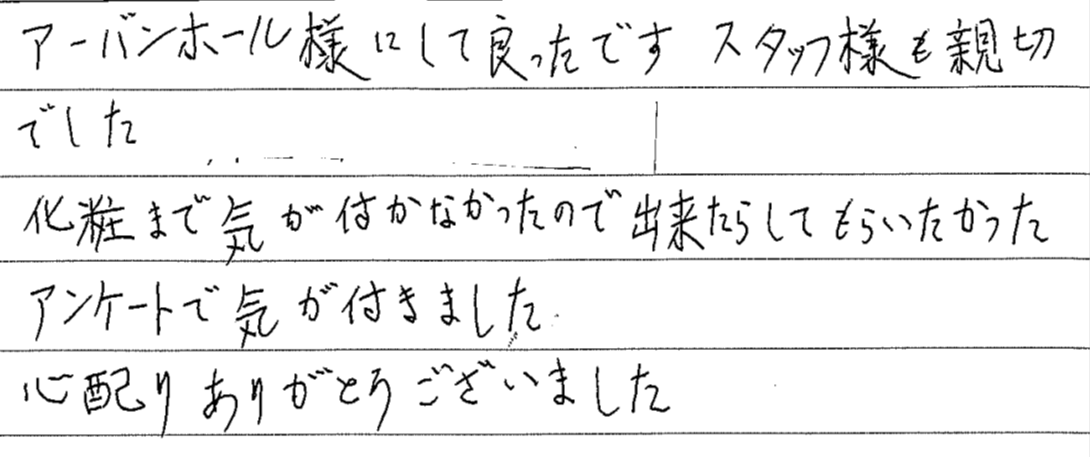 アーバンホール様にして良ったです スタッフ様も親切
でした
化粧まで気が付かなかったので出来たらしてもらいたかった
アンケートで気が付きました
心配りありがとうございました